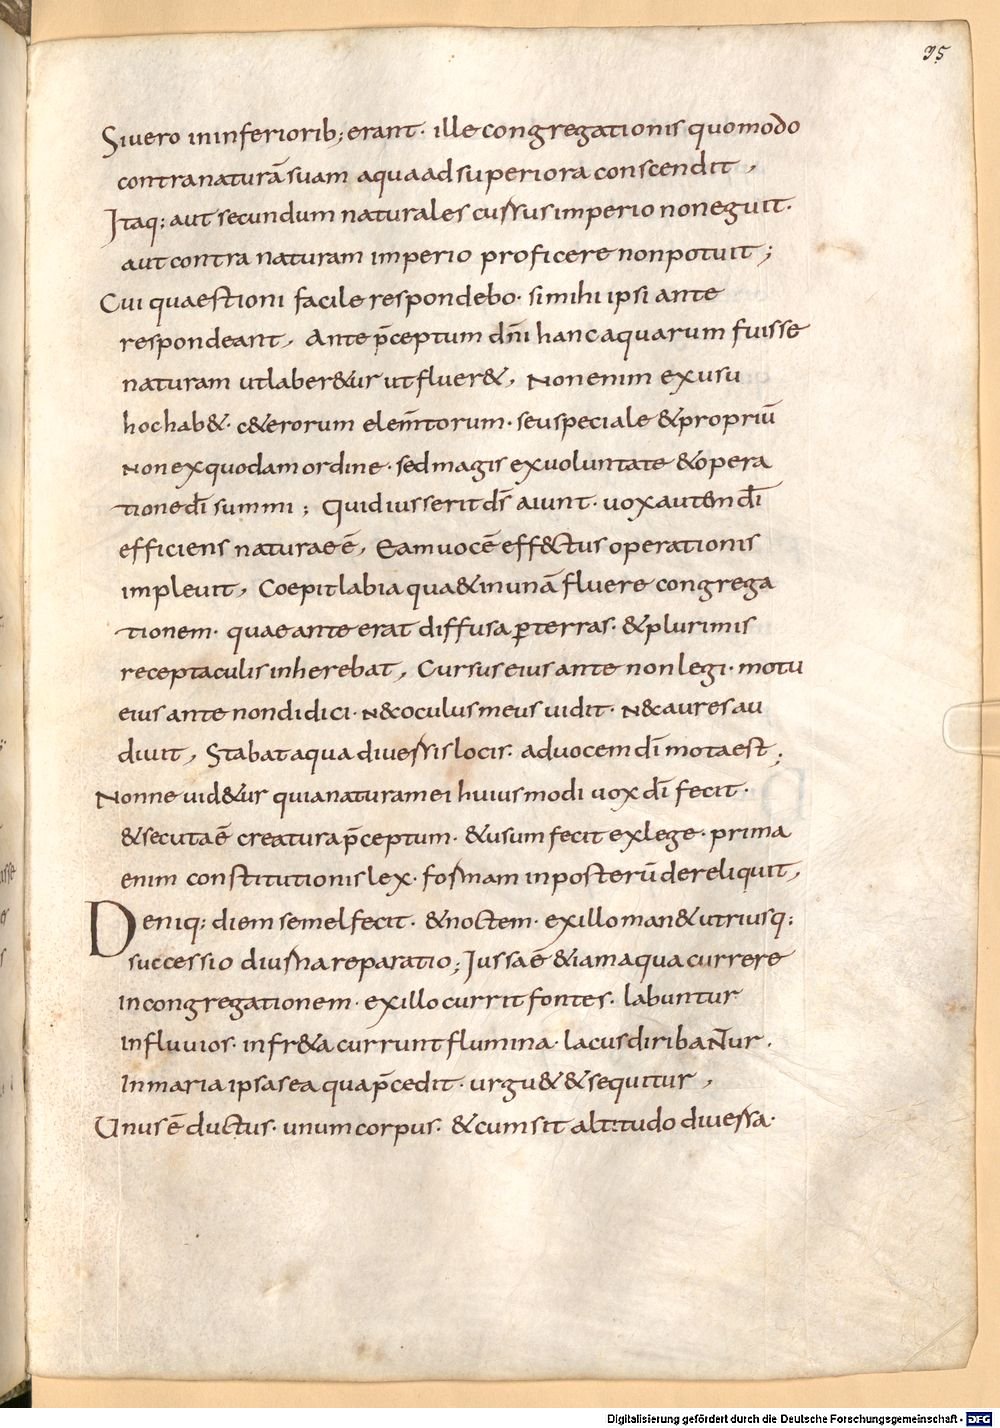 35
Siuero ininferiorib; erant· ille congregationis quomodo
contra naturā suam aqua ad superiora conscendit,
Itaq; aut secundum naturales cursus imperio non eguit·
aut contra naturam imperio proficere non potuit;
Cui quaestioni facile respondebo· si mihi ipsi ante
respondeant, Ante p̄ceptum dn̄i hanc aquarum fuisse
naturam ut laber&ur ut fluer&, Non enim ex usu
hoc hab&· c&erorum elem̄torum· seu speciale & propriū
Non ex quodam ordine· sed magis ex uoluntate & opera
tione dī summi; Quid iusserit ds̄ aiunt· uox autem dī
efficiens naturae ē, Eam uocē eff&ctus operationis
impleuit, Coepit labi aqua & in unā fluere congrega
tionem· quae ante erat diffusa ꝑ terras· & plurimis
receptaculis inherebat, Cursus eius ante non legi· motū
eius ante non didici· N& oculus meus uidit· N& aures au
diuit, Stabat aqua diuersis locis· ad uocem dī mota est;
Nonne uid&ur quia naturam ei huiusmodi uox dī fecit·
& secuta ē creatura p̄ceptum· & usum fecit ex lege· prima
enim constitutionis lex· formam in posterū dereliquit,
Deniq; diem semel fecit· & noctem· ex illo man& utriusq;
successio diurna reparatio; Iussa ē & iam aqua currere
in congregationem· ex illo currit fontes· labuntur
in fluuios· in fr&a currunt flumina· lacus diribaNTur·
In maria ipsa se aqua p̄cedit· urgu& & sequitur,
Unus ē ductus· unum corpus· & cum sit altitudo diuersa·
Digitalisierung gefördert durch die Deutsche Forschungsgemeinschaft - DFG